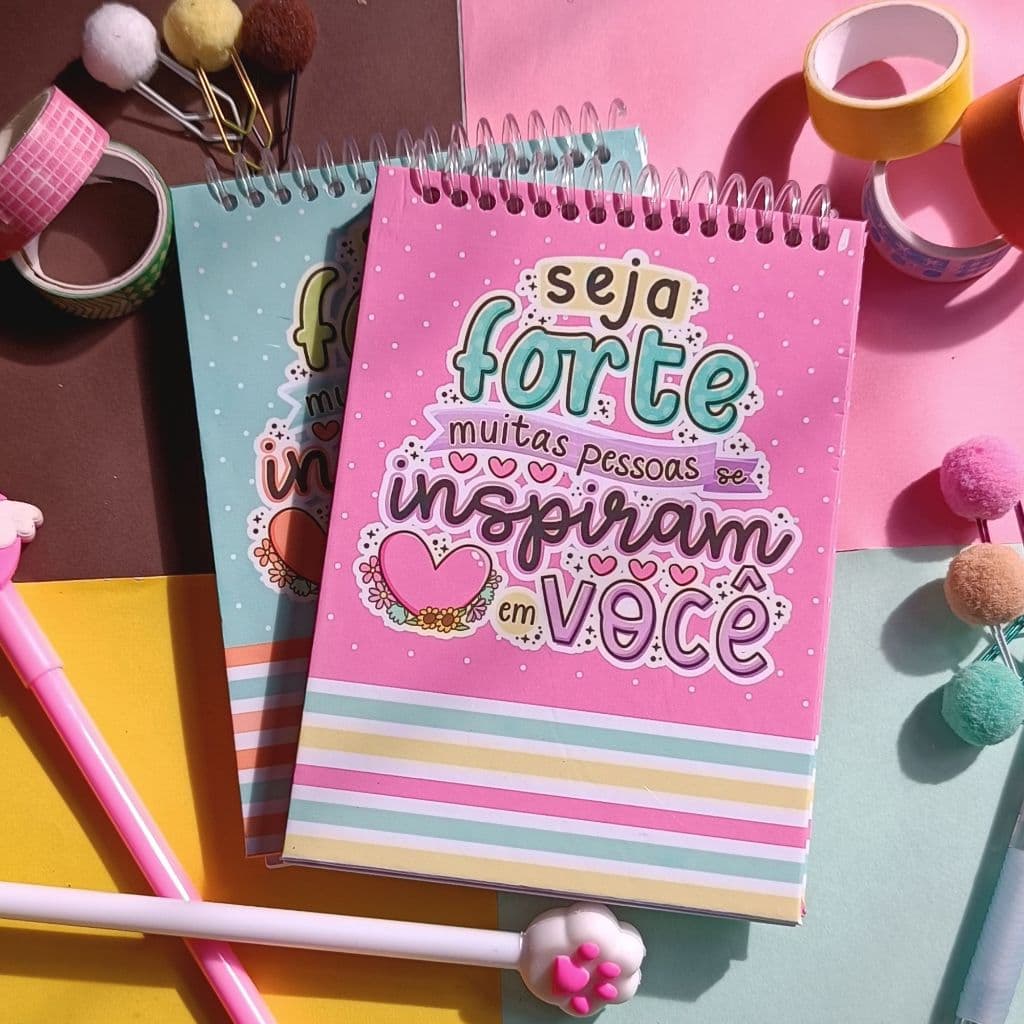 seja
forte
muitas pessoas se
inspiram
em VOCÊ